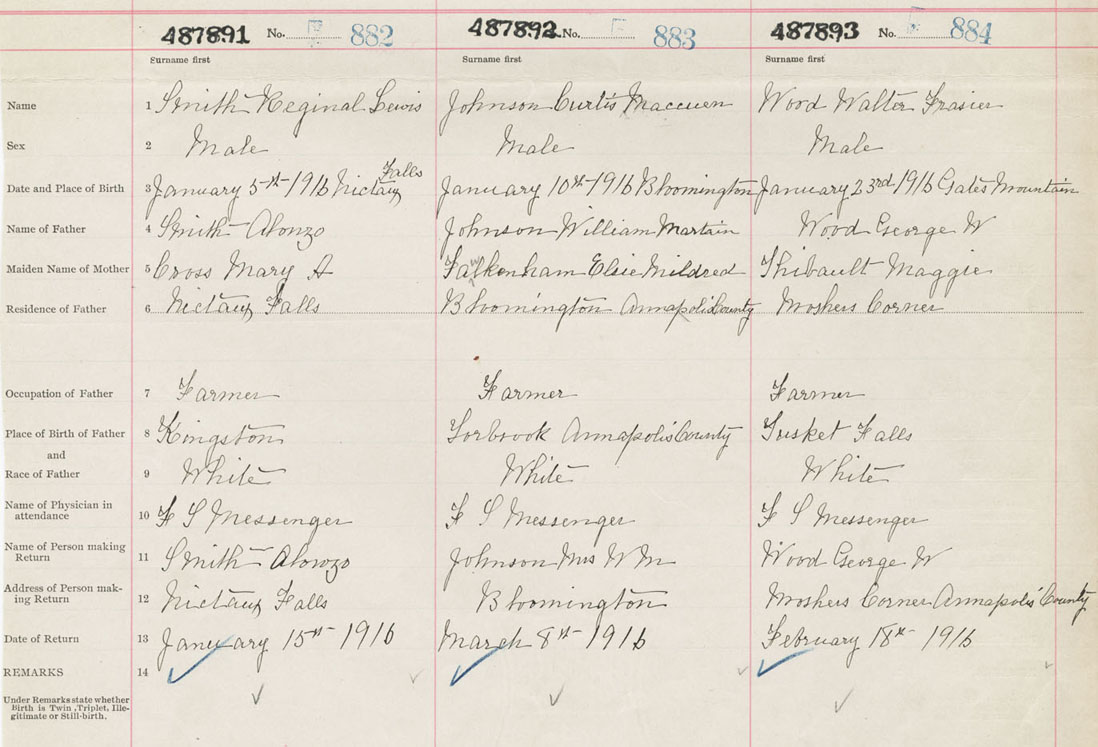 487891 No. 882 487892 No. 883 487893 No. 884
Surname first Surname first Surname first
Name 1 Smith Reginal Lewis Johnson Curtis Maccuen Wood Walter Frasier
Sex 2 Male Male Male
Falls
Date and Place of Birth 3 January 5th 1916 Nictaux January 10th 1916 Bloomington January 23rd 1916 Gates Mountain
Name of Father 4 Smith Alonzo Johnson William Martain Wood George W
Maiden Name of Mother 5 Cross Mary A Falkenham Elsie Mildred Thibault Maggie
Residence of Father 6 Nictaux Falls Bloomington Annapolis County Moshers Corner
Occupation of Father 7 Farmer Farmer Farmer
Place of Birth of Father 8 Kingston Torbrook Annapolis County Tusket Falls
and
Race of Father 9 White White White
Name of Physician in
attendance 10 F S Messenger F S Messenger F S Messenger
Name of Person making
Return 11 Smith Alonzo Johnson Mrs W M Wood George W
Address of Person mak-
ing Return 12 Nictaux Falls Bloomington Moshers Corner Annapolis County
Date of Return 13 January 15th 1916 March 8th 1916 February 18th 1916
REMARKS 14
Under Remarks state whether
Birth is Twin, Triplet, Ille-
gitimate or Still-birth.